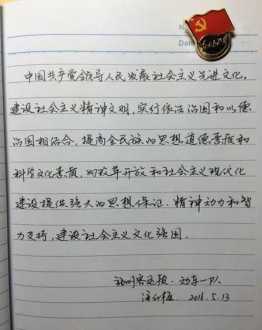 中国共产党领导人民发展社会主义先进文化。
建设社会主义精神文明，实行依法治国和以德
治国相结合，提高全民族的思想道德素质和
科学文化素质，为改革开放和社会主义现代化
建设提供强大的思想保证、精神动力和智
力支持，建设社会主义文化强国。
2016.5.13